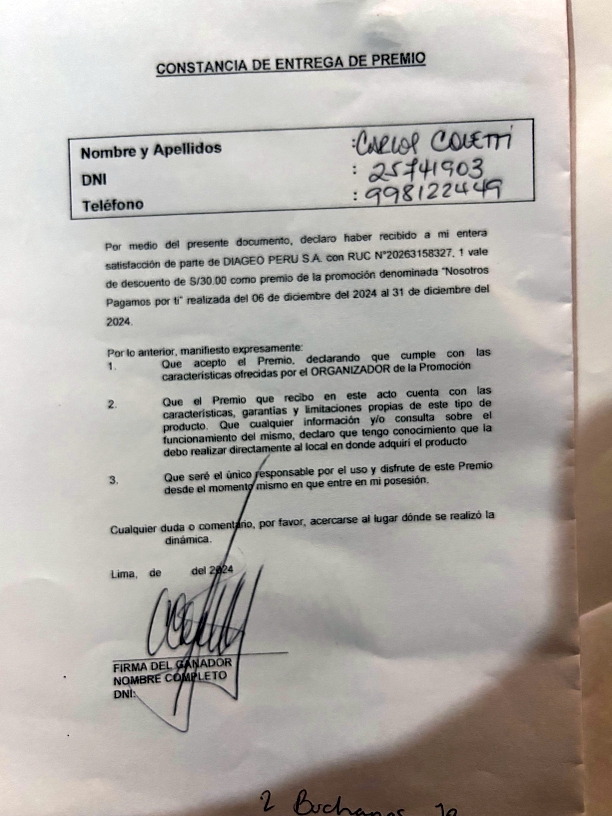 CONSTANCIA DE ENTREGA DE PREMIO
Nombre y Apellidos :CARLOS COLETTI
DNI : 25741903
Teléfono : 998122449
Por medio del presente documento, declaro haber recibido a mi entera
satisfacción de parte de DIAGEO PERU S.A. con RUC N°20263158327, 1 vale
de descuento de S/30.00 como premio de la promoción denominada "Nosotros
Pagamos por ti" realizada del 06 de diciembre del 2024 al 31 de diciembre del
2024.
Por lo anterior, manifiesto expresamente:
1. Que acepto el Premio, declarando que cumple con las
características ofrecidas por el ORGANIZADOR de la Promoción
2. Que el Premio que recibo en este acto cuenta con las
características, garantías y limitaciones propias de este tipo de
producto. Que cualquier información y/o consulta sobre el
funcionamiento del mismo, declaro que tengo conocimiento que la
debo realizar directamente al local en donde adquirí el producto
3. Que seré el único responsable por el uso y disfrute de este Premio
desde el momento mismo en que entre en mi posesión.
Cualquier duda o comentario, por favor, acercarse al lugar dónde se realizó la
dinámica.
Lima, de del 2024
FIRMA DEL GANADOR
NOMBRE COMPLETO
DNI:
2 Buchanas